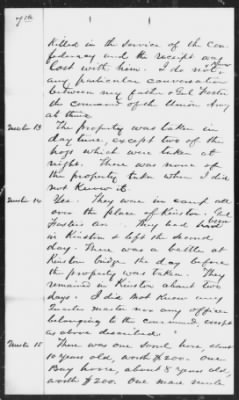 7th
killed in the service of the Con
federacy and the receipt was
lost with him. I do not know
any particular conversation
between my father & Gel Foster
the command of the Union Army
at thine
Number 13 The property was taken in
day time, except two of the
hogs which were taken at
night. There was none of
the property take when I did
not know it.
Number 14 Yes. They were in camp all
over the place of Kinston & Gel
Fosters Ar. They had been
in Kinston & left the second
day. There was a battle at
Kinston bridge the day before
the property was taken. They
remained in Kinston about two
days. I did not know any
Quarter master nor any officer
belonging to the command, except
as above described.
Number 15 There was one Sorrel horse, about
10 years old, worth $200. One
Bay horse, about 8 years old,
worth $200. One mare mule